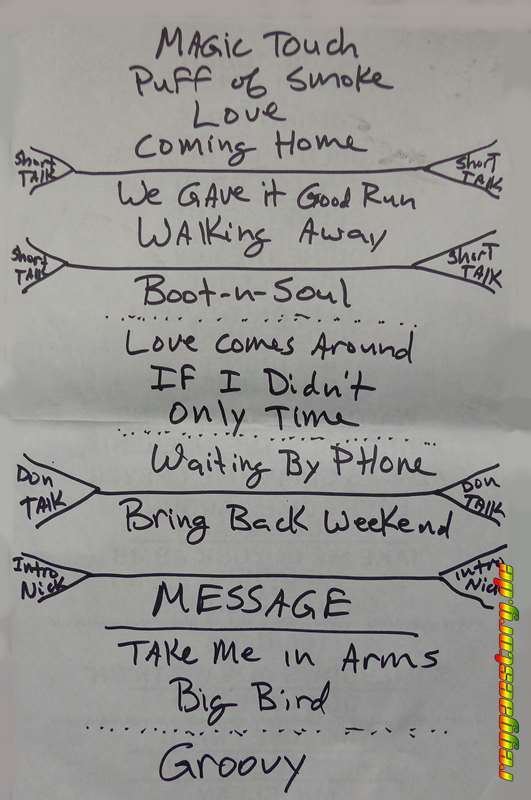 MAGIC TOUCH
PUFF of SMOKE
LOVE
COMING HOME
Short TALK
Short TALK
WE GAVE it Good Run
WALKING AWAY
Short TALK
Short TALK
Boot-n-Soul
Love comes Around
IF I Didn't
Only TIME
Waiting By PHONE
Don TALK
Don TALK
Bring Back Weekend
Intro Nick
intro Nick
MESSAGE
TAKE Me in Arms
Big Bird
Groovy
reggaestory.de